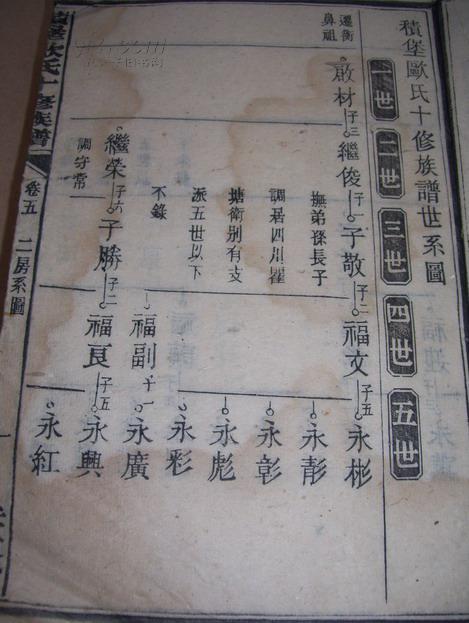 積堡歐氏十修族譜世系圖
一世
二世
三世
四世
五世
遷衡
鼻祖
啟材
子三
繼俊
子一
子敬
子二
福文
子五
永彬
撫弟孫長子
永彭
調居四川瞿
永彰
塘衡别有支
永彪
派五世以下
永彩
不錄
福副
子一
永廣
繼榮
子六
子勝
子二
福良
子五
永興
調守常
永紅
積堡歐氏十修族譜
卷五
二房系圖